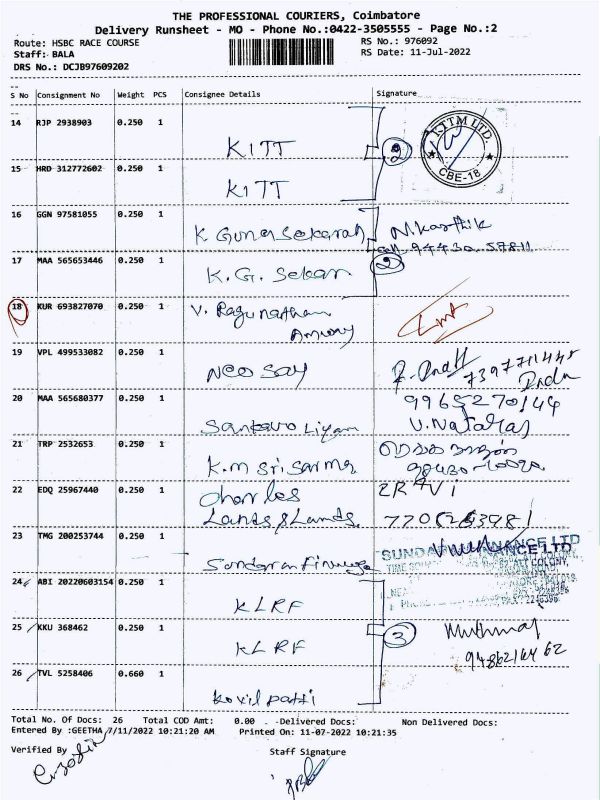 THE PROFESSIONAL COURIERS, Coimbatore
Delivery Runsheet - MO - Phone No.:0422-3505555 - Page No.:2
Route: HSBC RACE COURSE RS No.: 976092
Staff: BALA RS Date: 11-Jul-2022
DRS No.: DCJB97609202
S No Consignment No Weight PCS Consignee Details Signature
14 RJP 2938903 0.250 1 KITT
2
KITM LTD. CBE-18
15 HRD 312772602 0.250 1 KITT
16 GGN 97581055 0.250 1 K Gunasekaran N.Karthik
17 MAA 565653446 0.250 1 K.G. Sekar 2
18 KUR 693827070 0.250 1 V. Ragunathan
19 VPL 499533082 0.250 1 Neo Say
20 MAA 565680377 0.250 1 9965270144
V.Nataraj
21 TRP 2532653 0.250 1 K.m Sri Sarma
22 EDQ 25967440 0.250 1 Charles RAVI
Lands & Lands
23 TMG 200253744 0.250 1 Sundaram Finance
24 ABI 20220603154 0.250 1 KLRF
25 KKU 368462 0.250 1 KLRF 3 Muthuraj
26 TVL 5258406 0.660 1 Kovil patti
Total No. Of Docs: 26 Total COD Amt: 0.00 Delivered Docs: Non Delivered Docs:
Entered By :GEETHA 7/11/2022 10:21:20 AM Printed On: 11-07-2022 10:21:35
Verified By Staff Signature